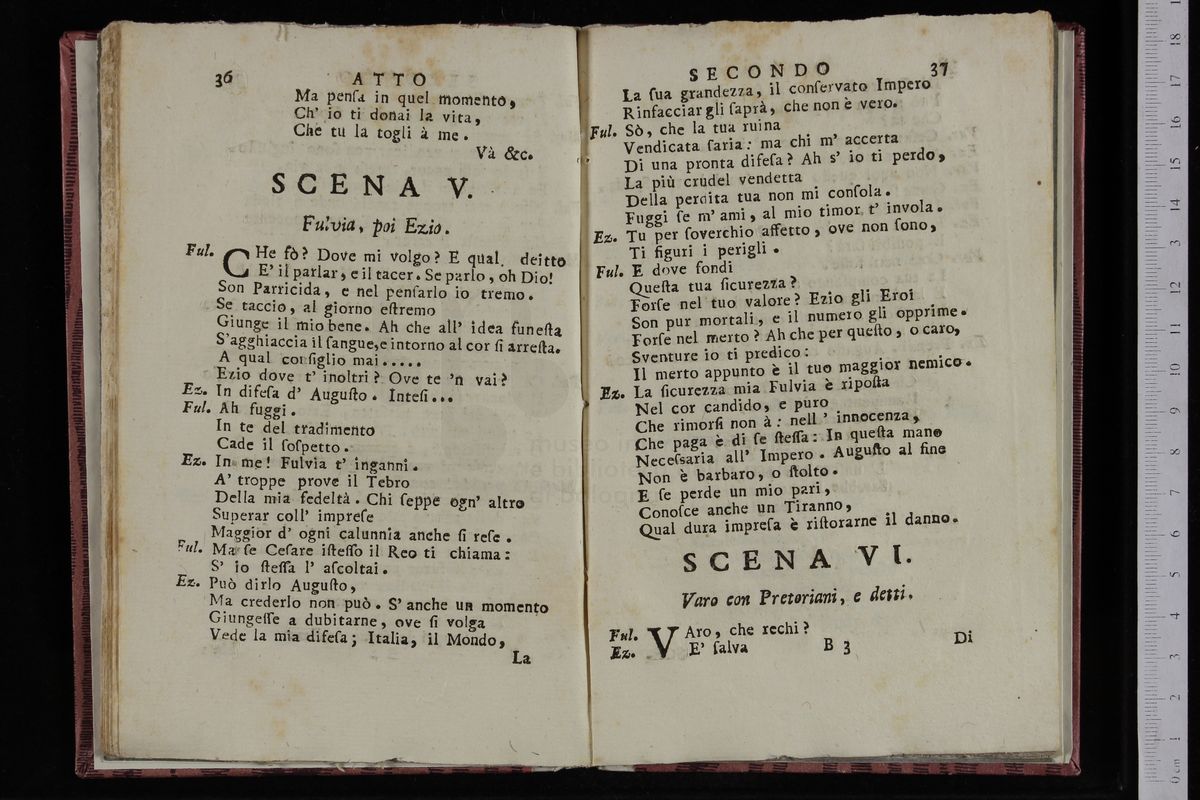 36 ATTO
Ma penſa in quel momento,
Ch' io ti donai la vita,
Che tu la togli à me.
Và &c.
SCENA V.
Fulvia, poi Ezio.
Ful. CHe fò? Dove mi volgo? E qual deitto
E' il parlar, e il tacer. Se parlo, oh Dio!
Son Parricida, e nel penſarlo io tremo.
Se taccio, al giorno eſtremo
Giunge il mio bene. Ah che all' idea funeſta
S'agghiaccia il ſangue, e intorno al cor ſi arreſta.
A qual conſiglio mai.....
Ezio dove t' inoltri? Ove te 'n vai?
Ez. In difeſa d' Auguſto. Inteſi...
Ful. Ah fuggi.
In te del tradimento
Cade il ſoſpetto.
Ez. In me! Fulvia t' inganni.
A' troppe prove il Tebro
Della mia fedeltà. Chi ſeppe ogn' altro
Superar coll' impreſe
Maggior d' ogni calunnia anche ſi reſe.
Ful. Ma ſe Ceſare iſteſſo il Reo ti chiama:
S' io ſteſſa l' aſcoltai.
Ez. Può dirlo Auguſto,
Ma crederlo non può. S' anche un momento
Giungeſſe a dubitarne, ove ſi volga
Vede la mia difeſa; Italia, il Mondo,
La
SECONDO 37
La ſua grandezza, il conſervato Impero
Rinfacciar gli ſaprà, che non è vero.
Ful. Sò, che la tua ruina
Vendicata ſaria: ma chi m' accerta
Di una pronta difeſa? Ah s' io ti perdo,
La più crudel vendetta
Della perdita tua non mi conſola.
Fuggi ſe m' ami, al mio timor t' invola.
Ez. Tu per ſoverchio affetto, ove non ſono,
Ti figuri i perigli.
Ful. E dove fondi
Queſta tua ſicurezza?
Forſe nel tuo valore? Ezio gli Eroi
Son pur mortali, e il numero gli opprime.
Forſe nel merto? Ah che per queſto, o caro,
Sventure io ti predico:
Il merto appunto è il tuo maggior nemico.
Ez. La ſicurezza mia Fulvia è ripoſta
Nel cor candido, e puro
Che rimorſi non à: nell' innocenza,
Che paga è di ſe ſteſſa: In queſta mano
Neceſsaria all' Impero. Auguſto al fine
Non è barbaro, o ſtolto.
E ſe perde un mio pari,
Conoſce anche un Tiranno,
Qual dura impreſa è riſtorarne il danno.
SCENA VI.
Varo con Pretoriani, e detti.
Ful. VAro, che rechi?
Ez. E' ſalva
B 3 Di